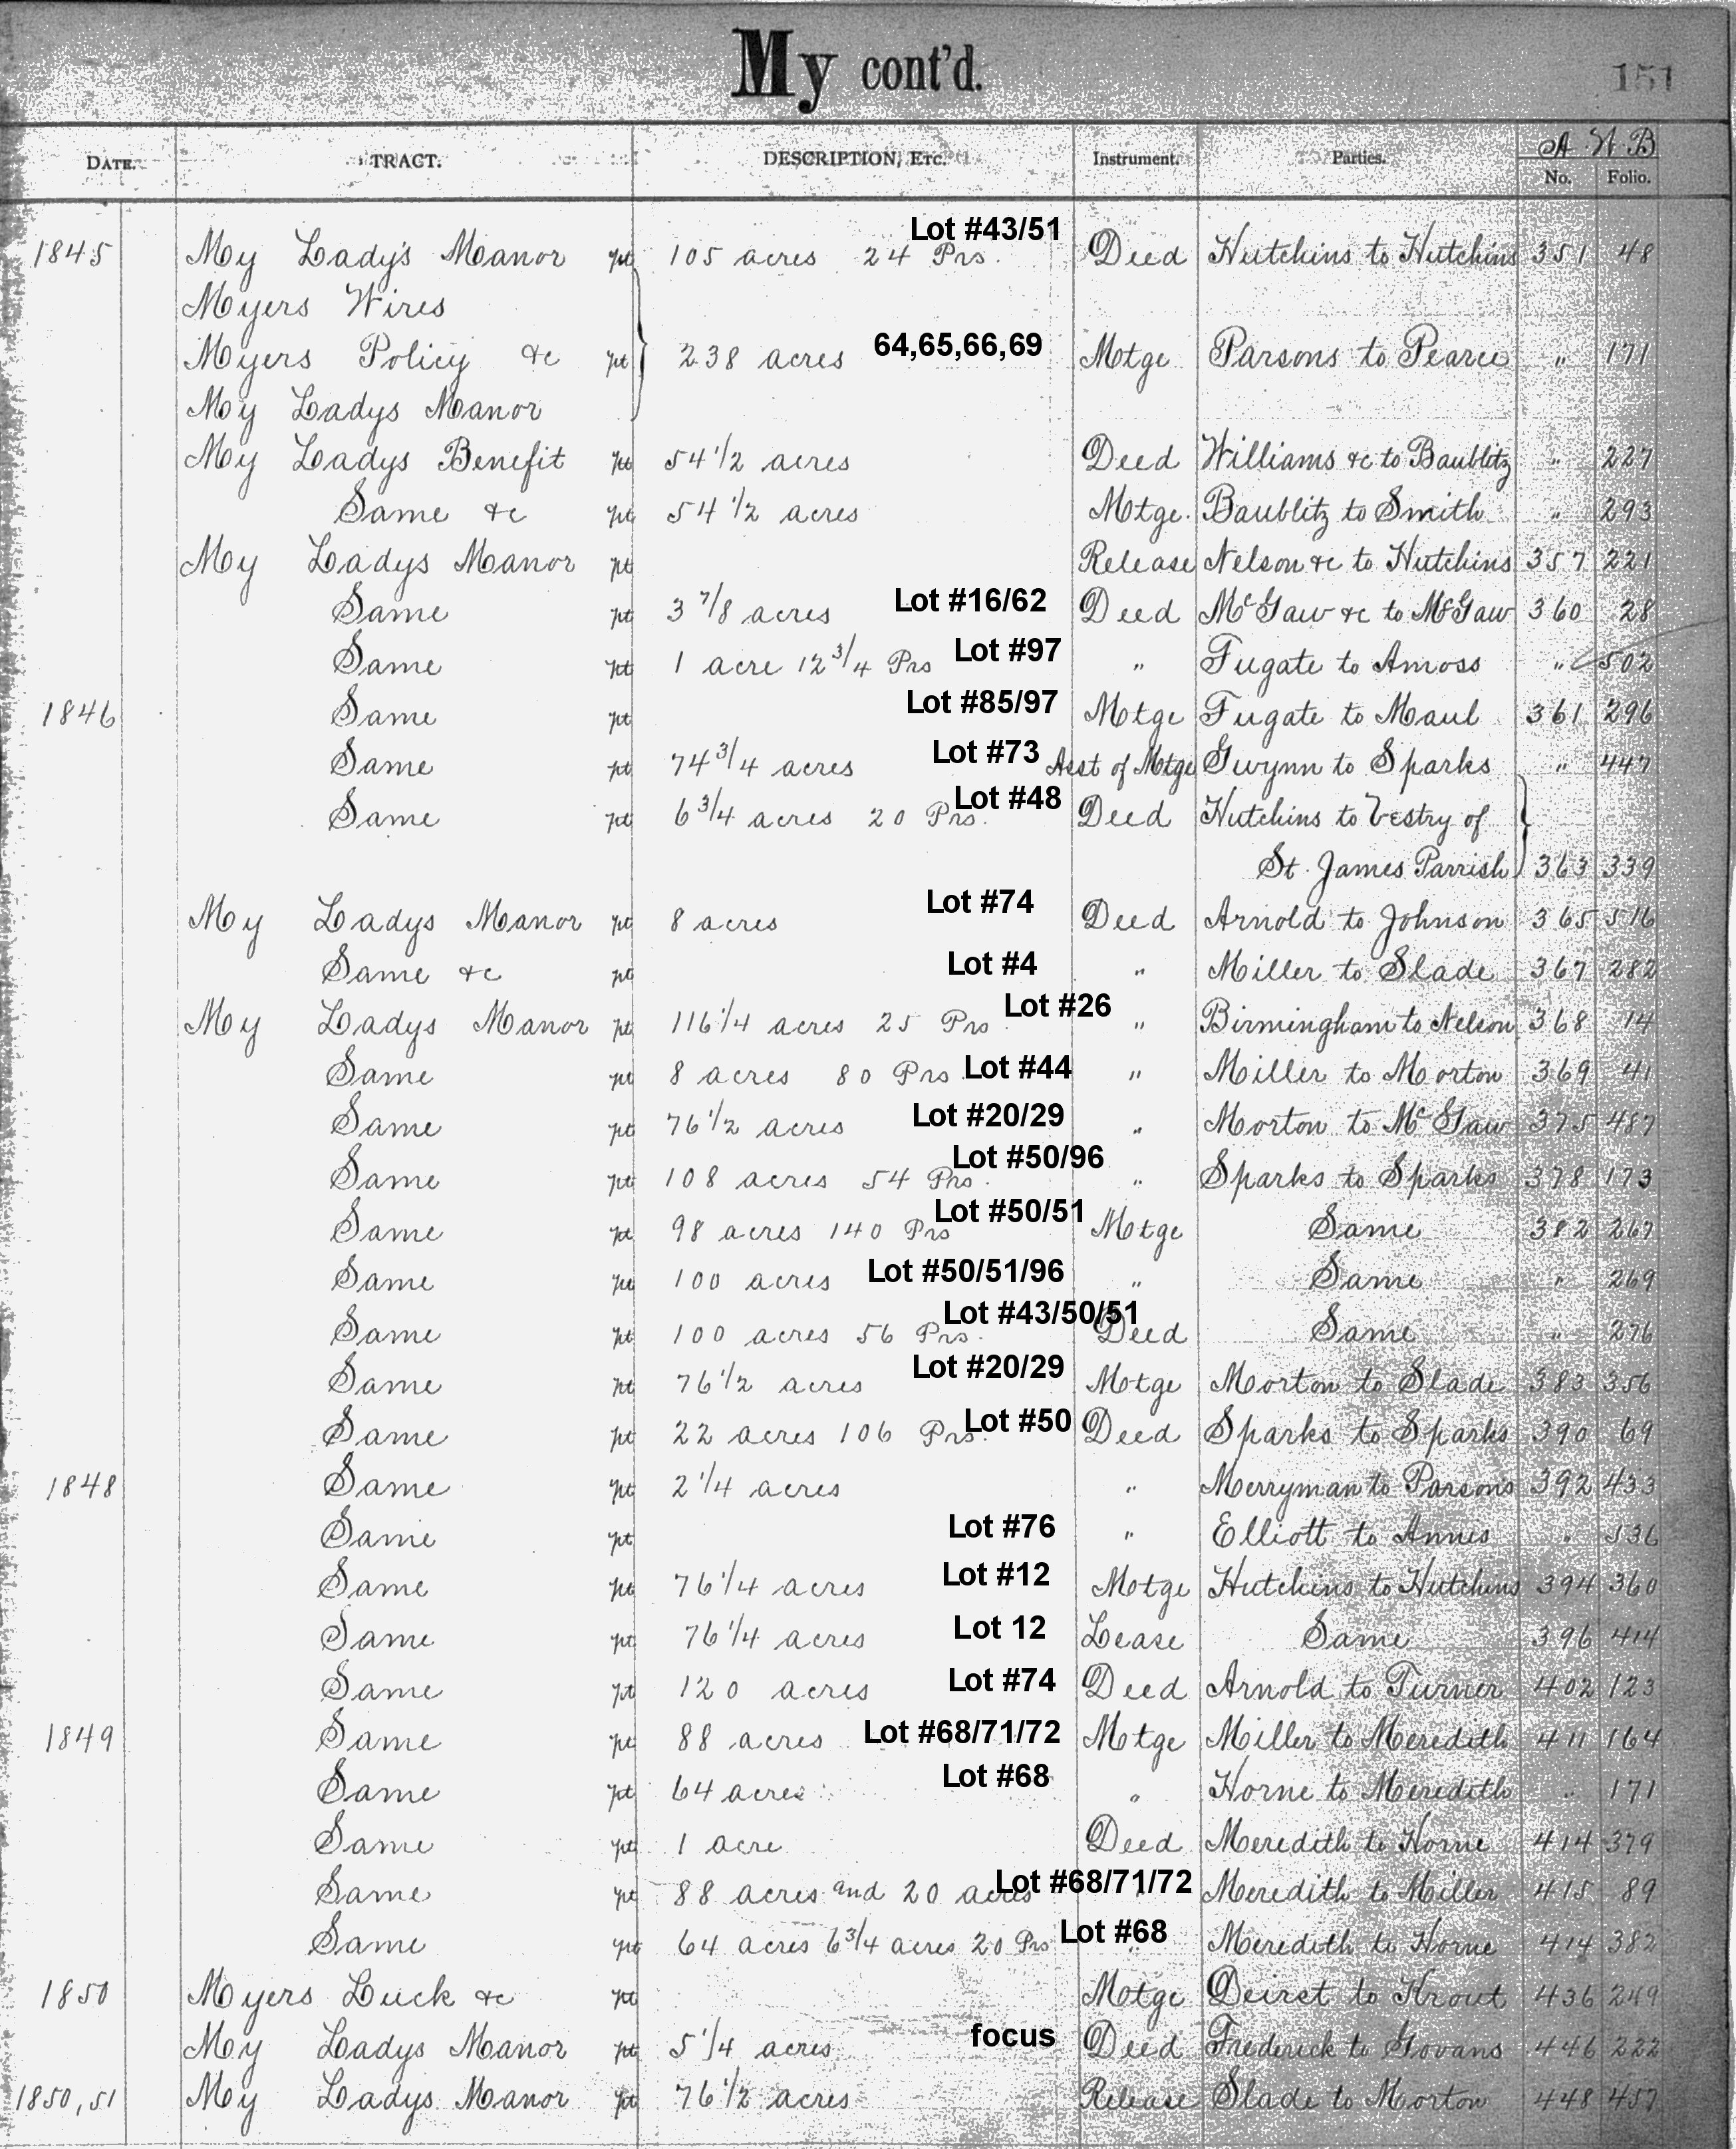 My cont'd.
151
A W B
DATE. TRACT. DESCRIPTION, ETC. Instrument. Parties. No. Folio.
Lot #43/51
1845 My Lady's Manor pt 105 acres 24 Prs. Deed Hutchins to Hutchins 351 48
Myers Wires
Myers Policy &c pt 238 acres 64,65,66,69 Motge Parsons to Pearce " 171
My Ladys Manor
My Ladys Benefit pt 54 1/2 acres Deed Williams &c to Baublitz " 227
Same &c pt 54 1/2 acres Motge. Baublitz to Smith " 293
My Ladys Manor pt Release Nelson &c to Hutchins 357 221
Same pt 3 7/8 acres Lot #16/62 Deed McGaw &c to McGaw 360 28
Same pt 1 acre 12 3/4 Prs Lot #97 " Fugate to Amoss " 502
1846 Same pt Lot #85/97 Motge Fugate to Maul 361 296
Same pt 74 3/4 acres Lot #73 Asst of Motge Gwynn to Sparks " 447
Same pt 6 3/4 acres 20 Prs. Lot #48 Deed Hutchins to Vestry of
St. James Parrish 363 339
My Ladys Manor pt 8 acres Lot #74 Deed Arnold to Johnson 365 516
Same &c pt Lot #4 " Miller to Slade 367 282
My Ladys Manor pt 116 1/4 acres 25 Prs Lot #26 " Birmingham to Nelson 368 14
Same pt 8 acres 80 Prs Lot #44 " Miller to Morton 369 41
Same pt 76 1/2 acres Lot #20/29 " Morton to McGaw 375 487
Same pt 108 acres 54 Prs. Lot #50/96 " Sparks to Sparks 378 173
Same pt 98 acres 140 Prs Lot #50/51 Motge Same 382 267
Same pt 100 acres Lot #50/51/96 " Same " 269
Same pt 100 acres 56 Prs. Lot #43/50/51 Deed Same " 276
Same pt 76 1/2 acres Lot #20/29 Motge Morton to Slade 383 356
Same pt 22 acres 106 Prs. Lot #50 Deed Sparks to Sparks 390 69
1848 Same pt 2 1/4 acres " Merryman to Parsons 392 433
Same pt Lot #76 " Elliott to Annis " 536
Same pt 76 1/4 acres Lot #12 Motge Hutchins to Hutchins 394 360
Same pt 76 1/4 acres Lot 12 Lease Same 396 414
Same pt 120 acres Lot #74 Deed Arnold to Turner 402 123
1849 Same pt 88 acres Lot #68/71/72 Motge Miller to Meredith 411 164
Same pt 64 acres Lot #68 " Horne to Meredith " 171
Same pt 1 acre Deed Meredith to Horne 414 379
Same pt 88 acres and 20 acres Lot #68/71/72 " Meredith to Miller 415 89
Same pt 64 acres 6 3/4 acres 20 Prs Lot #68 " Meredith to Horne 414 382
1850 Myers Luck &c pt Motge Deirst to Krout 436 249
My Ladys Manor pt 5 1/4 acres focus Deed Frederick to Govans 446 222
1850,51 My Ladys Manor pt 76 1/2 acres Release Slade to Morton 448 457